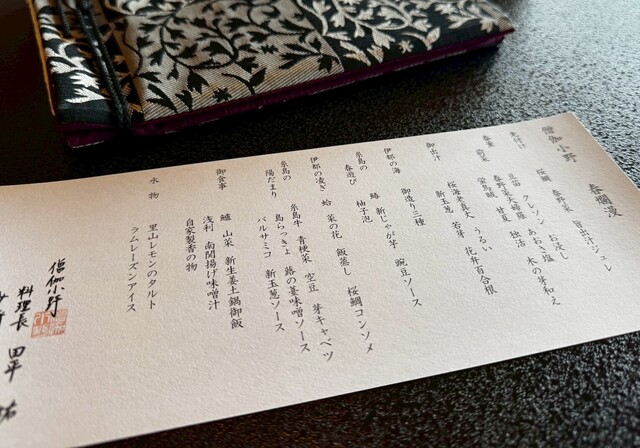 僧伽小野　春爛漫
先付け　桜鯛　春野菜　お浸し　旨出汁ジュレ
豆苗　クレソン　あおさ塩
春野菜天婦羅　独活　木の芽和え
蛍烏賊　甘夏
御出汁　桜海老真丈　うるい
新玉葱　若芽　花弁百合根
伊都の海　御造り三種
糸島の春遊び　鰆　新じゃが芋　豌豆ソース
柚子泡
伊都の凌ぎ　蛤　菜の花　飯蒸し　桜鯛コンソメ
糸島の陽だまり　糸島牛　青梗菜　空豆　芽キャベツ
島らっきょ　蕗の薹味噌ソース
バルサミコ　新玉葱ソース
御食事　鱸　山菜　新生姜土鍋御飯
浅利　南関揚げ味噌汁
自家製香の物
水物　里山レモンのタルト
ラムレーズンアイス
僧伽小野
料理長　田平　祐